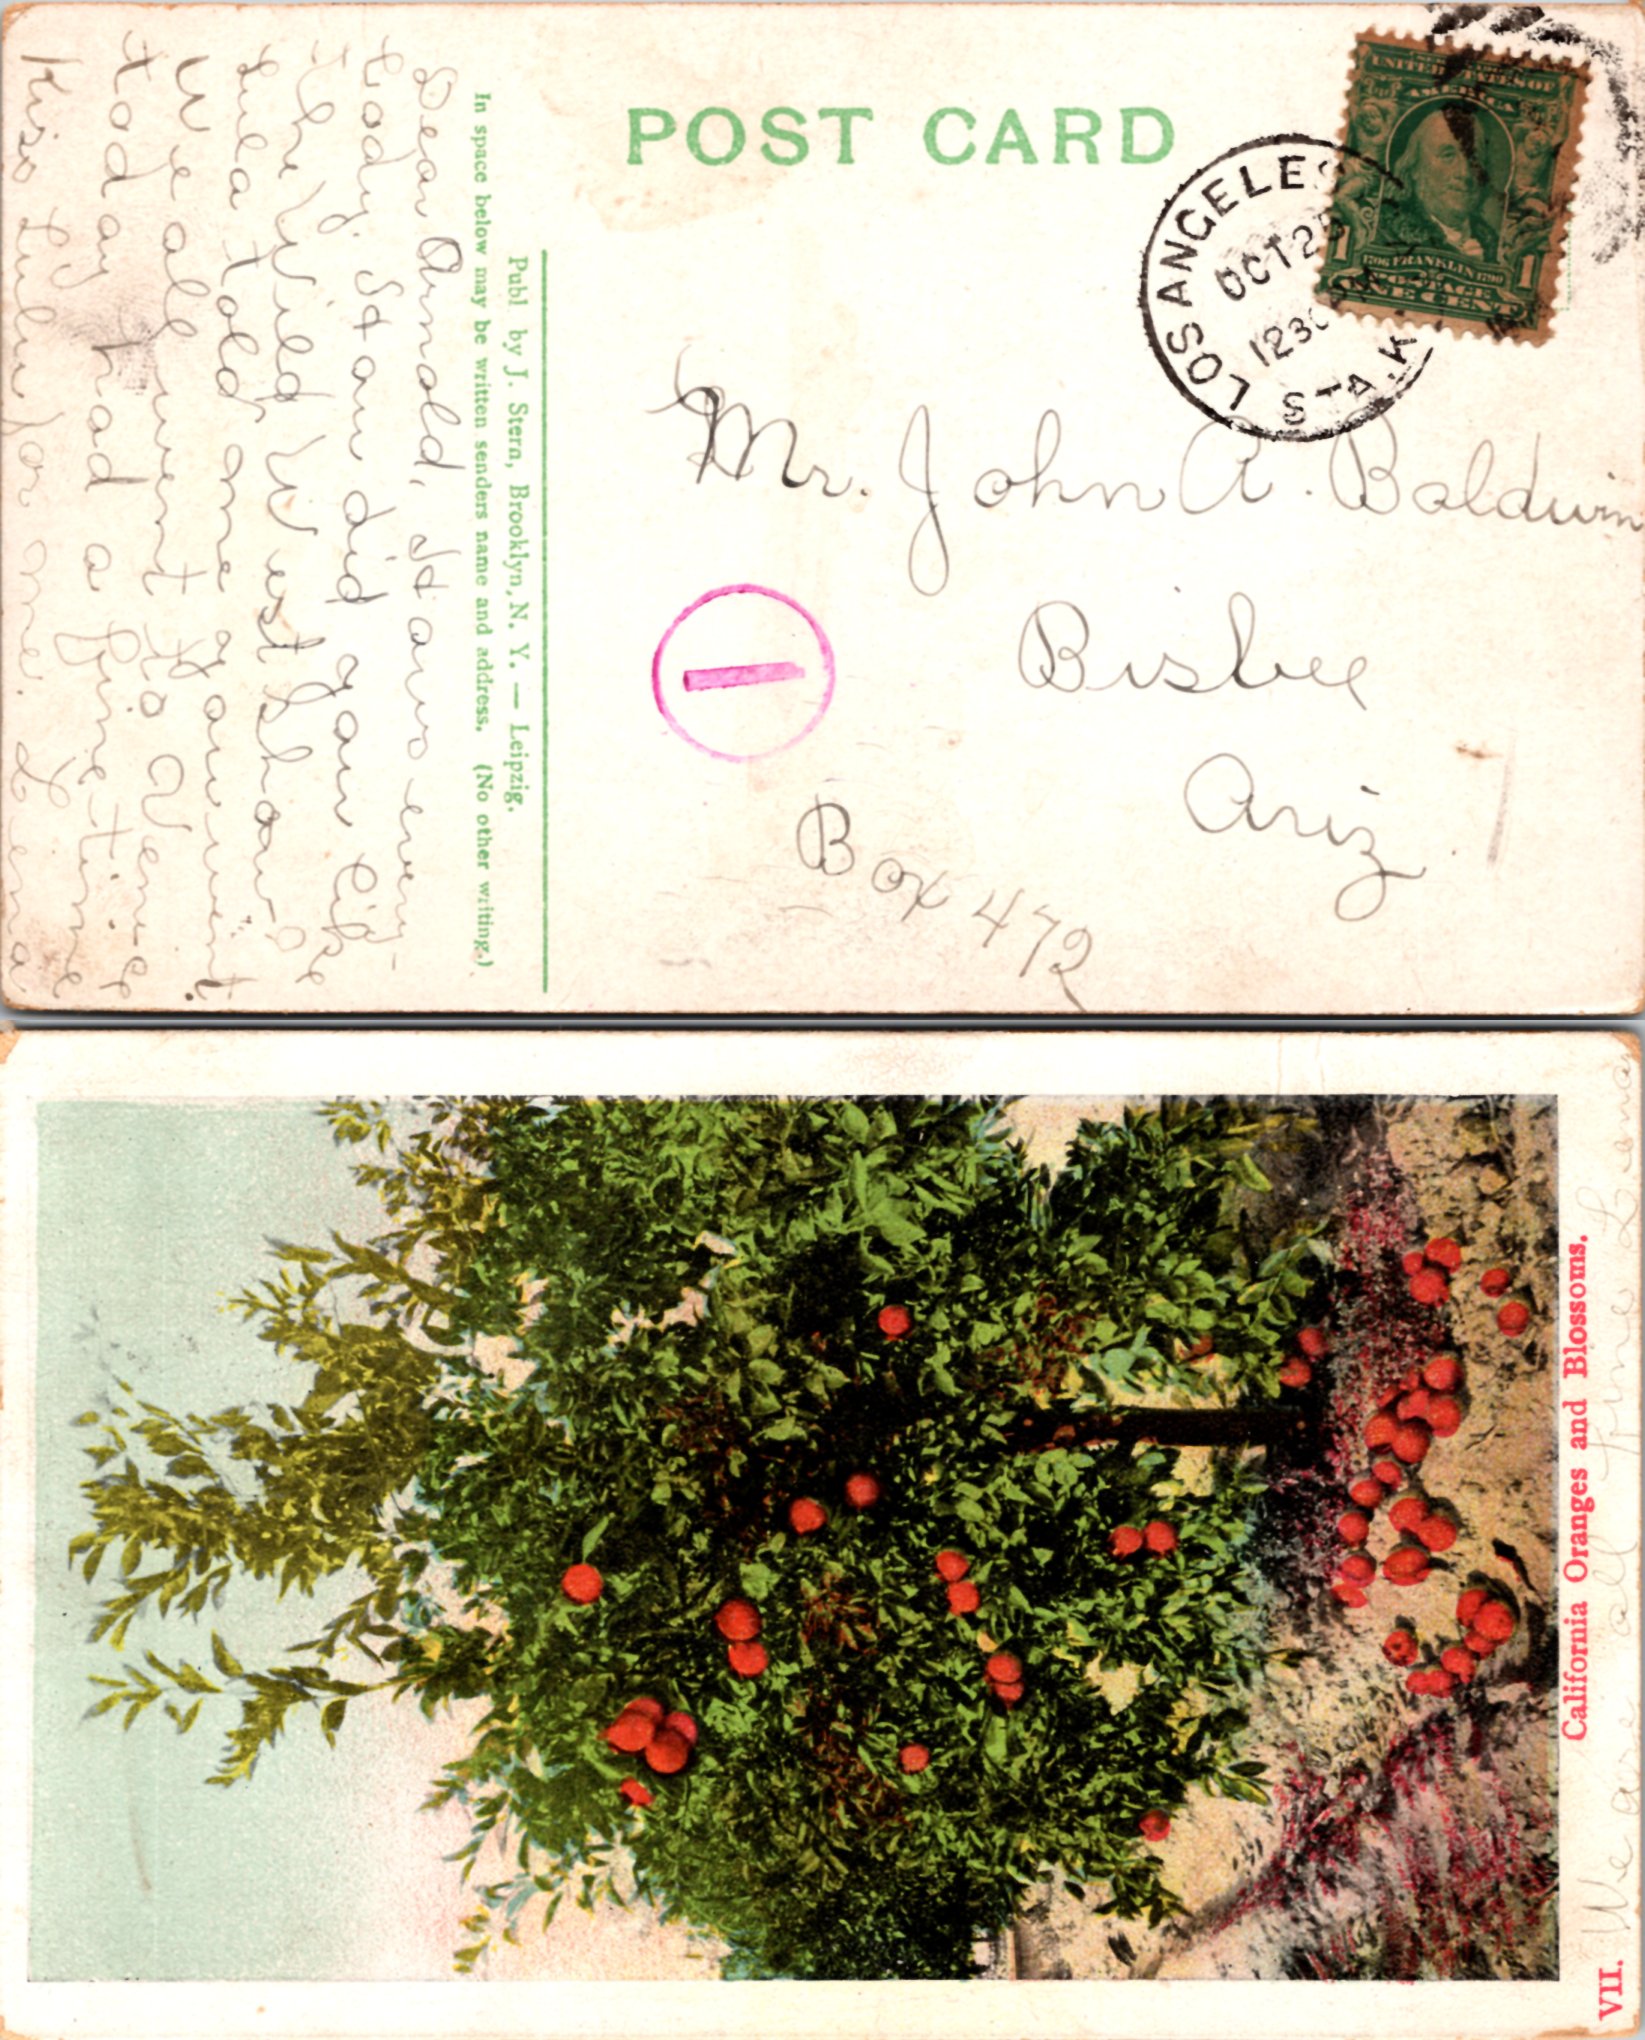 POST CARD
UNITED STATES OF
AMERICA
1 1706 FRANKLIN 1790 1
POSTAGE
ONE CENT
LOS ANGELES
OCT 25
1230
STA. K
Mr. John A. Baldwin
Bisbee
Ariz.
Box 472
Publ by J. Stern, Brooklyn, N. Y. — Leipzig.
In space below may be written senders name and address. (No other writing.)
Dear Arnold, How's every-
body. How did you like
the Wild West show?
Lula told me you went.
We all went to Venice
today had a fine time
Kiss Lulu for me. Leona
California Oranges and Blossoms.
VII.
We are all fine Leona